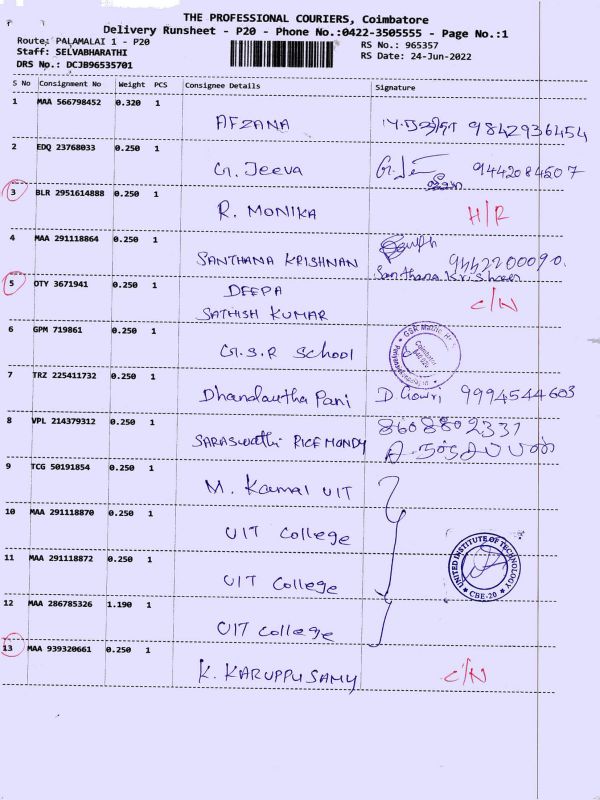 THE PROFESSIONAL COURIERS, Coimbatore
Delivery Runsheet - P20 - Phone No.:0422-3505555 - Page No.:1
Route: PALAMALAI 1 - P20
RS No.: 965357
Staff: SELVABHARATHI
RS Date: 24-Jun-2022
DRS No.: DCJB96535701
S No Consignment No Weight PCS Consignee Details Signature
1 MAA 566798452 0.320 1
AFZANA 9842936454
2 EDQ 23768033 0.250 1
G. Jeeva 9442084507
3 BLR 2951614888 0.250 1
R. MONIKA H/R
4 MAA 291118864 0.250 1
SANTHANA KRISHNAN 9442200090.
Santhana Krishnan
5 OTY 3671941 0.250 1
DEEPA
SATHISH KUMAR C/N
6 GPM 719861 0.250 1
G.S.R School
7 TRZ 225411732 0.250 1
Dhandautha Pani D Gowri 9994544603
8 VPL 214379312 0.250 1
8608802331
SARASWAthi RICE MONDY
9 TCG 50191854 0.250 1
M. Kamal UIT
10 MAA 291118870 0.250 1
UIT College
11 MAA 291118872 0.250 1
UIT College
UNITED INSTITUTE OF TECHNOLOGY
CBE-20
12 MAA 286785326 1.190 1
UIT College
13 MAA 939320661 0.250 1
K. KARUPPUSAMY C/N